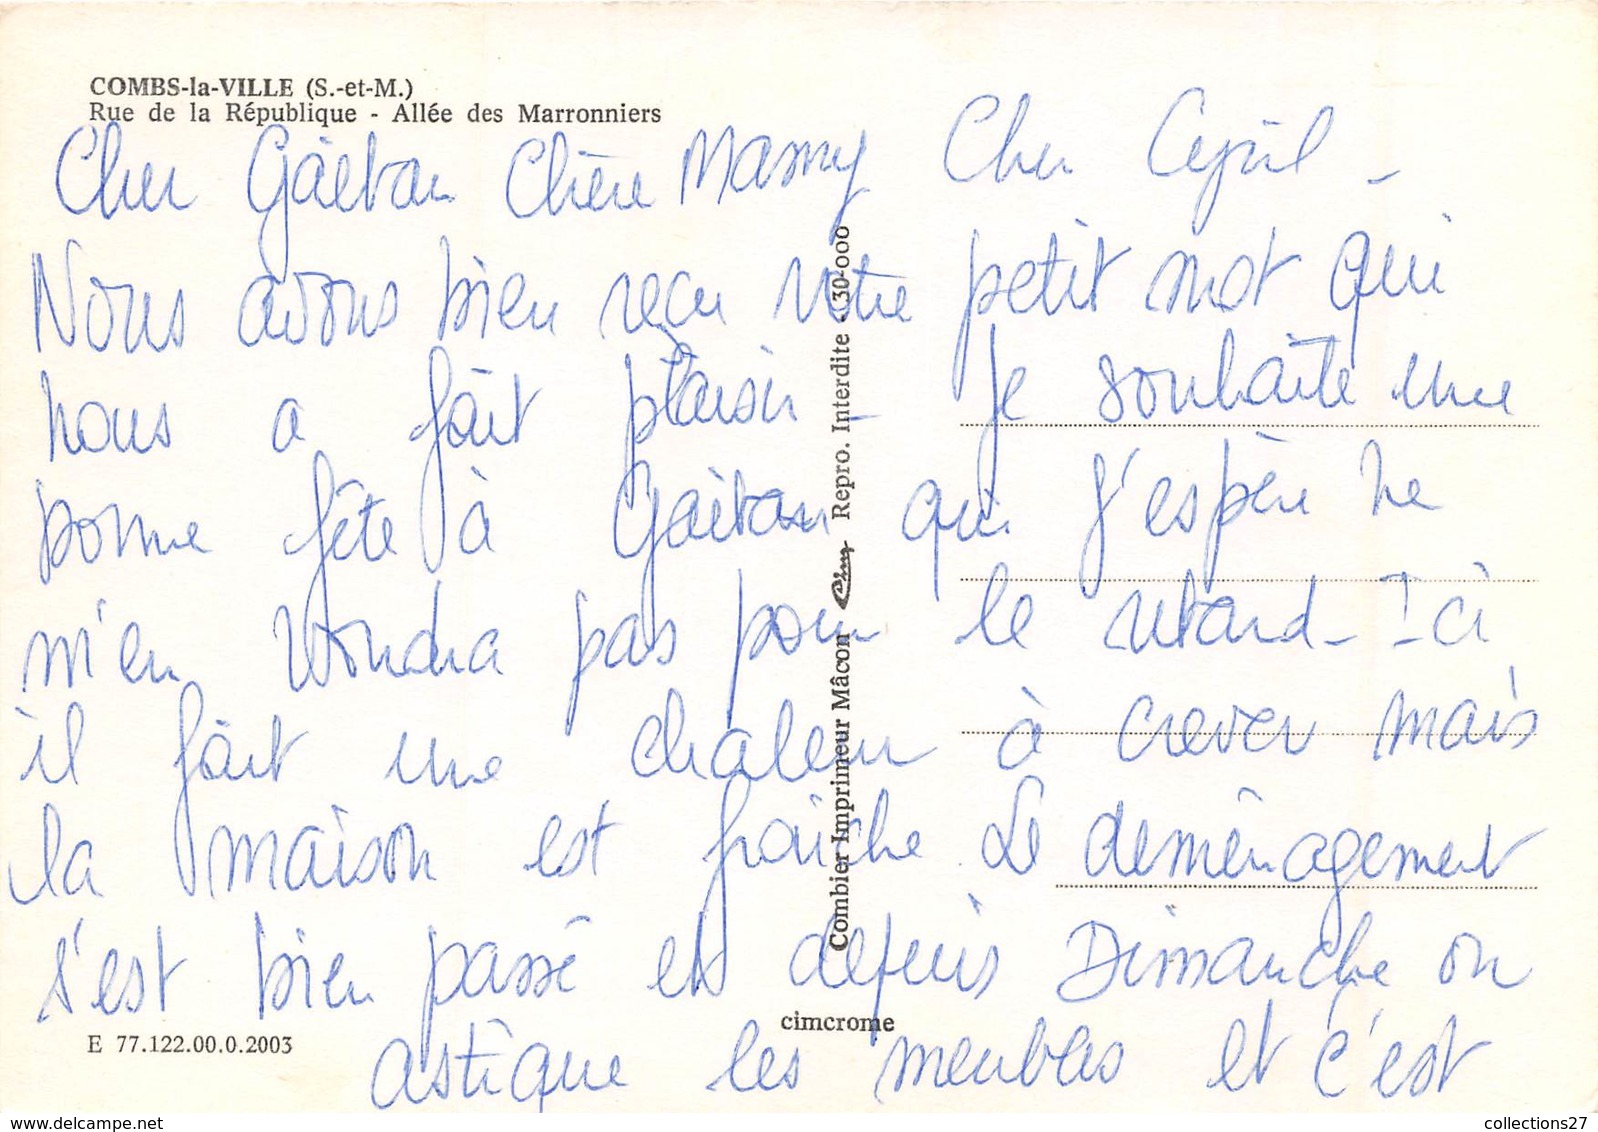 COMBS-la-VILLE (S.-et-M.)
Rue de la République - Allée des Marronniers
Cher Gaëtan Chère Mamy Cher Cyril -
Nous avons bien reçu votre petit mot qui
nous a fait plaisir - Je souhaite une
bonne fête à Gaëtan qui j'espère ne
m'en voudra pas pour le retard - Ici
il fait une chaleur à crever mais
la maison est fraîche. Le déménagement
s'est bien passé et depuis Dimanche on
astique les meubles et c'est
Combier Imprimeur Mâcon Cim Repro. Interdite - 30-000
cimcrome
E 77.122.00.0.2003
collections27